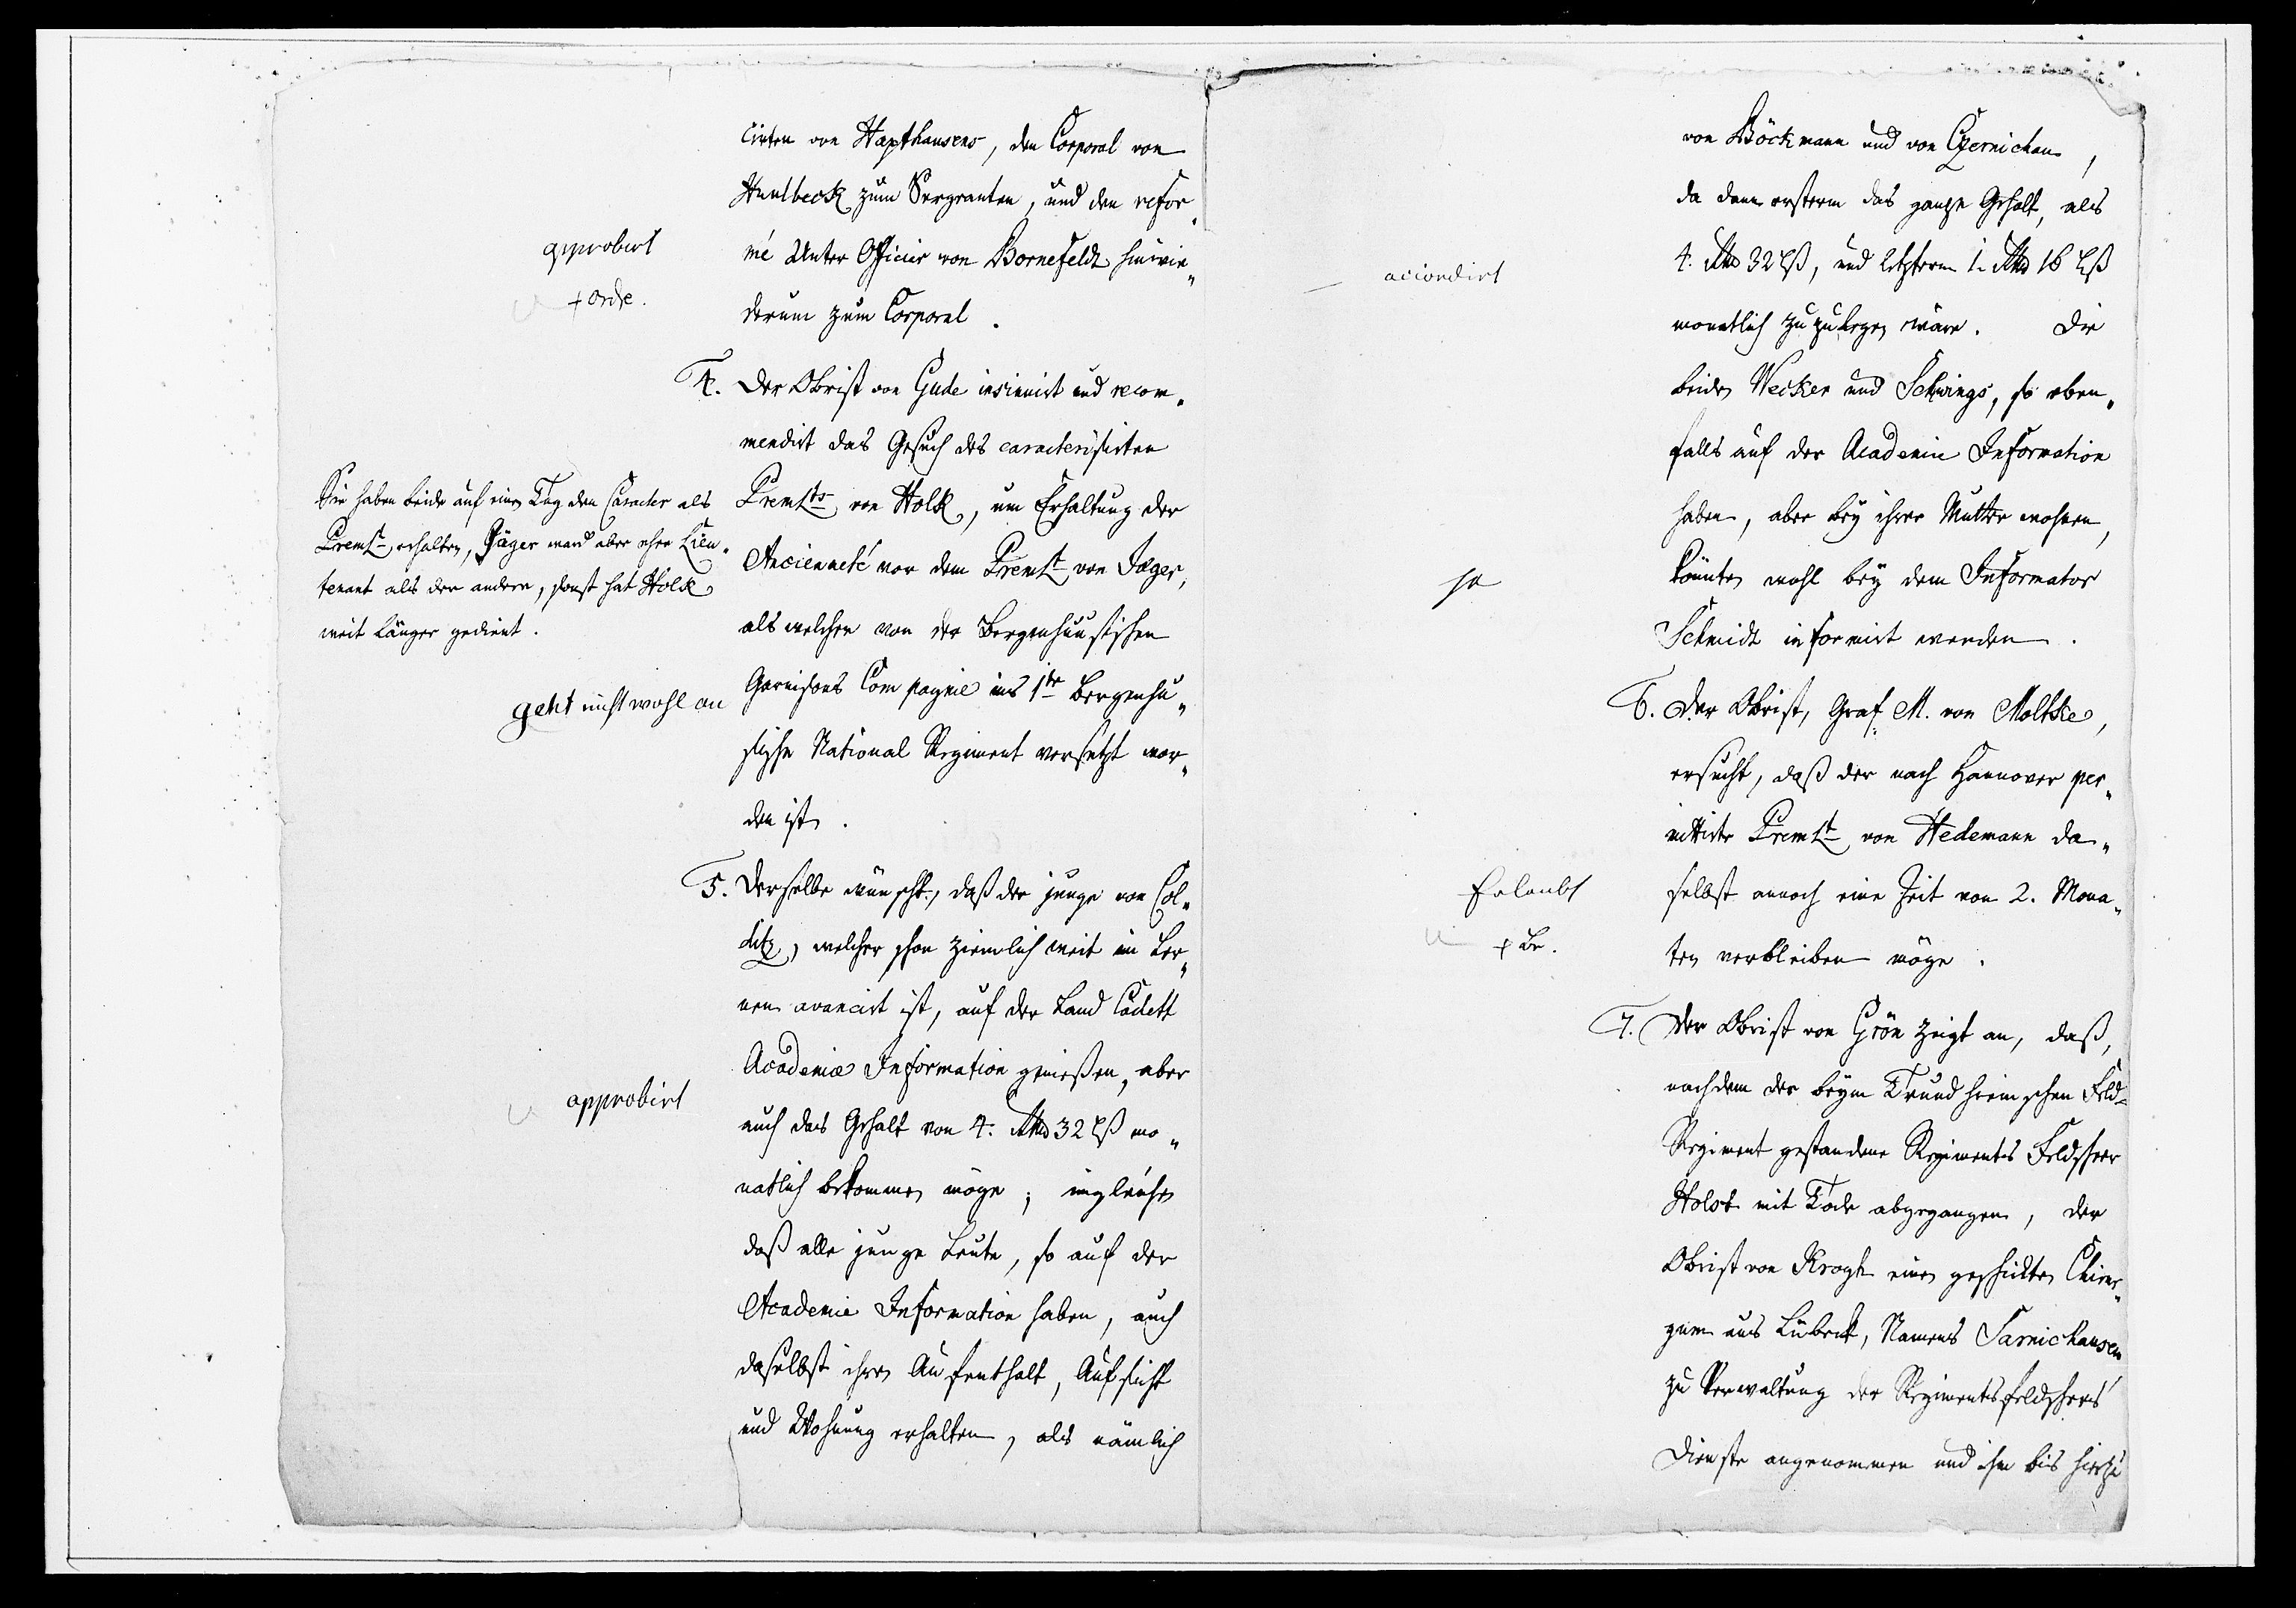 cirten von Haxthausens, den Corporal von
Huulbeck zum Sergeanten, und den refor„
mé Unter Officier von Bornefeldt hinwie„
derum zum Corporal.
approbirt
+ Ordre.
4. Der Obrist von Gude insinuirt und recom„
mendirt das Gesuch des caracterisirten
PremLts von Holk, um Erhaltung der
Ancienneté vor dem PremLt von Jæger,
als welcher von der Bergenhuusischen
Garnisons Compagnie ins 1te Bergenhu„
sische National Regiment versetzt wor„
den ist.
Sie haben beide auf einen Tag den Caracter als
PremLt erhalten, Jäger ward aber eher Lieu„
tenant als der andere, sonst hat Holk
weit länger gedient.
geht nicht wohl an
5. Derselbe wünscht, daß der junge von Col„
ditz, welcher schon ziemlich weit im Ler„
nen avancirt ist, auf der Land Cadett
Academie Information genießen, aber
auch das Gehalt von 4. Rthlr 32 lß mo„
natlich bekommen möge; ingleichen
daß alle junge Leute, so auf der
Academie Information haben, auch
daselbst ihren Aufenthalt, Aufsicht
und Wohnung erhalten, als nämlich
approbirt
von Böckmann und von Czernichau,
da dann ersterm das ganze Gehalt, als
4. Rthlr 32 lß, und letzterm 1. Rthlr 16 lß
monatlich zuzulegen wäre. Die
beiden Wecker und Schwings, so eben„
falls auf der Academie Information
haben, aber bey ihrer Mutter wohnen,
könnten wohl bey dem Informator
Schmidt informirt werden.
accordirt
ja
6. Der Obrist, Graf M. von Moltke,
ersucht, daß der nach Hannover per„
mittirte PremLt von Hedemann da„
selbst annoch eine Zeit von 2. Mona„
ten verbleiben möge.
Erlaubt
+ Br.
7. Der Obrist von Grön zeigt an, daß,
nachdem der beym Trundheimschen Feld-
Regiment gestandene Regiments Feldscheer
Holst mit Tode abgegangen, der
Obrist von Krogh einen geschickten Chirur„
gum aus Lübeck, Namens Sarnichausen
zu Verwaltung der Regimentsfeldscheers
Dienste angenommen und ihn bis hierzu